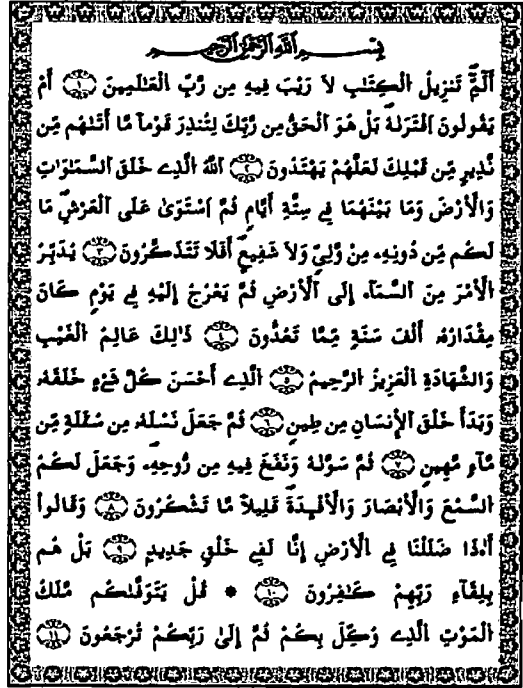 بِسْمِ اللَّهِ الرَّحْمَٰنِ الرَّحِيمِ
أَلَمِّ تَنزِيلُ الْكِتَٰبِ لاَ رَيْبَ فِيهِ مِن رَّبِّ الْعَٰلَمِينَ ١ أَمْ
يَقُولُونَ اَفْتَرَىٰهُ بَلْ هُوَ اَلْحَقُّ مِن رَّبِّكَ لِتُنذِرَ قَوْماً مَّا أَتَىٰهُم مِّن
نَّذِيرٍ مِّن قَبْلِكَ لَعَلَّهُمْ يَهْتَدُونَ ٢ اَللَّهُ اَلَّذِي خَلَقَ السَّمَٰوَٰتِ
وَالْأَرْضَ وَمَا بَيْنَهُمَا فِي سِتَّةِ أَيَّامٍ ثُمَّ اَسْتَوَىٰ عَلَى اَلْعَرْشِ مَا
لَكُم مِّن دُونِهِۦ مِنْ وَّلِيٍّ وَلاَ شَفِيعٍ أَفَلاَ تَتَذَكَّرُونَ ٣ يُدَبِّرُ
اَلْأَمْرَ مِنَ السَّمَآءِ إِلَى اَلْأَرْضِ ثُمَّ يَعْرُجُ إِلَيْهِ فِي يَوْمٍ كَانَ
مِقْدَارُهُۥ أَلْفَ سَنَةٍ مِّمَّا تَعُدُّونَ ٤ ذَٰلِكَ عَالِمُ الْغَيْبِ
وَالشَّهَادَةِ اِلْعَزِيزُ الرَّحِيمُ ٥ اَلَّذِي أَحْسَنَ كُلَّ شَيْءٍ خَلَقَهُۥ
وَبَدَأَ خَلْقَ اَلْإِنسَانِ مِن طِينٍ ٦ ثُمَّ جَعَلَ نَسْلَهُۥ مِن سُلَٰلَةٍ مِّن
مَّآءٍ مَّهِينٍ ٧ ثُمَّ سَوَّىٰهُ وَنَفَخَ فِيهِ مِن رُّوحِهِۦ وَجَعَلَ لَكُمُ
السَّمْعَ وَالْأَبْصَارَ وَالْأَفْئِدَةَ قَلِيلاً مَّا تَشْكُرُونَ ٨ وَقَالُوا
أَ.ذَا ضَلَلْنَا فِي اِلْأَرْضِ إِنَّا لَفِي خَلْقٍ جَدِيدٍ ٩ بَلْ هُم
بِلِقَآءِ رَبِّهِمْ كَٰفِرُونَ ١٠ * قُلْ يَتَوَفَّىٰكُم مَّلَكُ
اَلْمَوْتِ اِلَّذِي وُكِّلَ بِكُمْ ثُمَّ إِلَىٰ رَبِّكُمْ تُرْجَعُونَ ١١